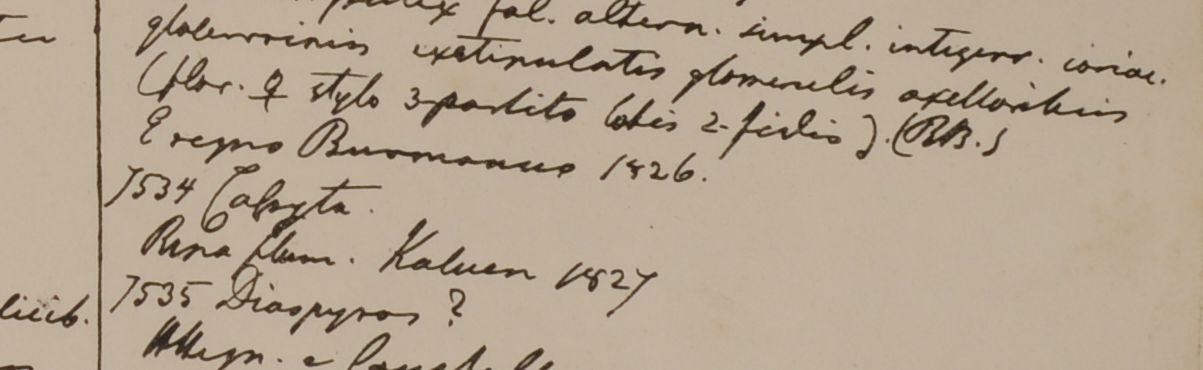 frutex fol. altern. simpl. integerr. coriac.
glaberrimis exstipulatis glomerulis axillaribus
(flor. ♀ stylo 3-partito lobis 2-fidis). (RB.)
E regno Burmanus 1826.
7534
Ripa flum. Kaluen 1827
licib. 7535 Diospyros ?